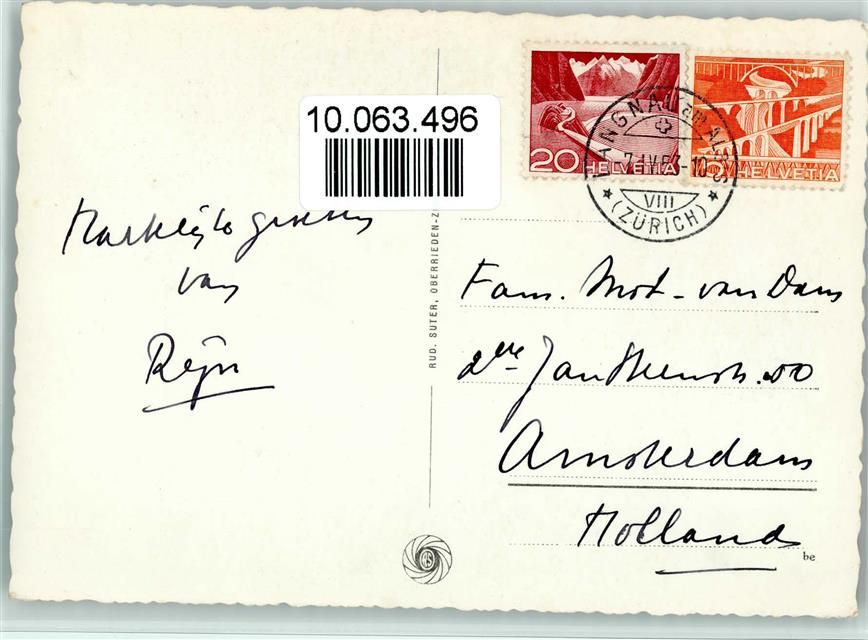 10.063.496
Hartelijke groeten
van
Reijn
RUD. SUTER, OBERRIEDEN-Z
20 HELVETIA
5 HELVETIA
LANGNAU am ALBIS
-7.IV.53-10
VIII
(ZÜRICH)
Fam. Mot - van Dam
2de Jan Steenstr. 80
Amsterdam
Holland
be